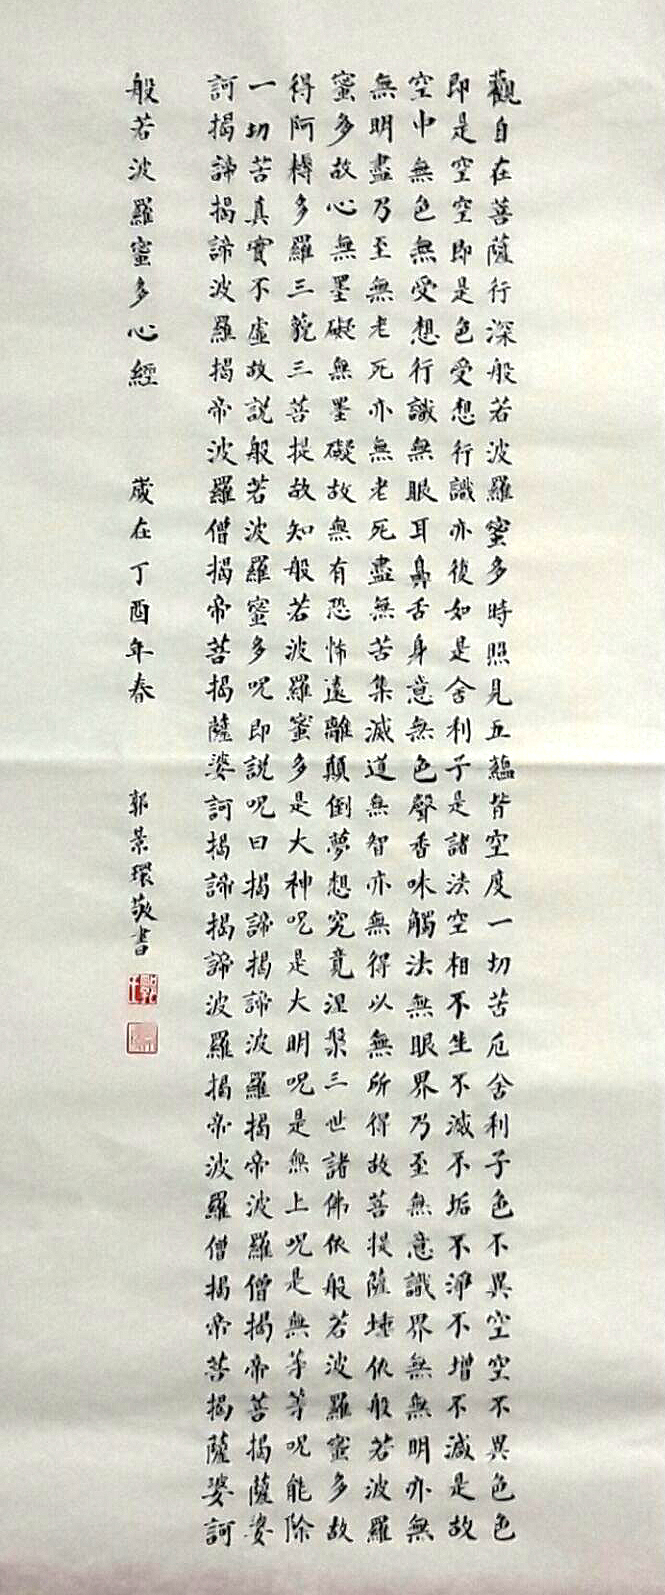 觀自在菩薩行深般若波羅蜜多時照見五蘊皆空度一切苦厄舍利子色不異空空不異色色
即是空空即是色受想行識亦復如是舍利子是諸法空相不生不滅不垢不淨不增不減是故
空中無色無受想行識無眼耳鼻舌身意無色聲香味觸法無眼界乃至無意識界無無明亦無
無明盡乃至無老死亦無老死盡無苦集滅道無智亦無得以無所得故菩提薩埵依般若波羅
蜜多故心無罣礙無罣礙故無有恐怖遠離顛倒夢想究竟涅槃三世諸佛依般若波羅蜜多故
得阿耨多羅三藐三菩提故知般若波羅蜜多是大神呪是大明呪是無上呪是無等等呪能除
一切苦真實不虛故說般若波羅蜜多呪即說呪曰揭諦揭諦波羅揭帝波羅僧揭帝菩揭薩婆
訶揭諦揭諦波羅揭帝波羅僧揭帝菩揭薩婆訶揭諦揭諦波羅揭帝波羅僧揭帝菩揭薩婆訶
般若波羅蜜多心經 歲在丁酉年春 郭景環敬書